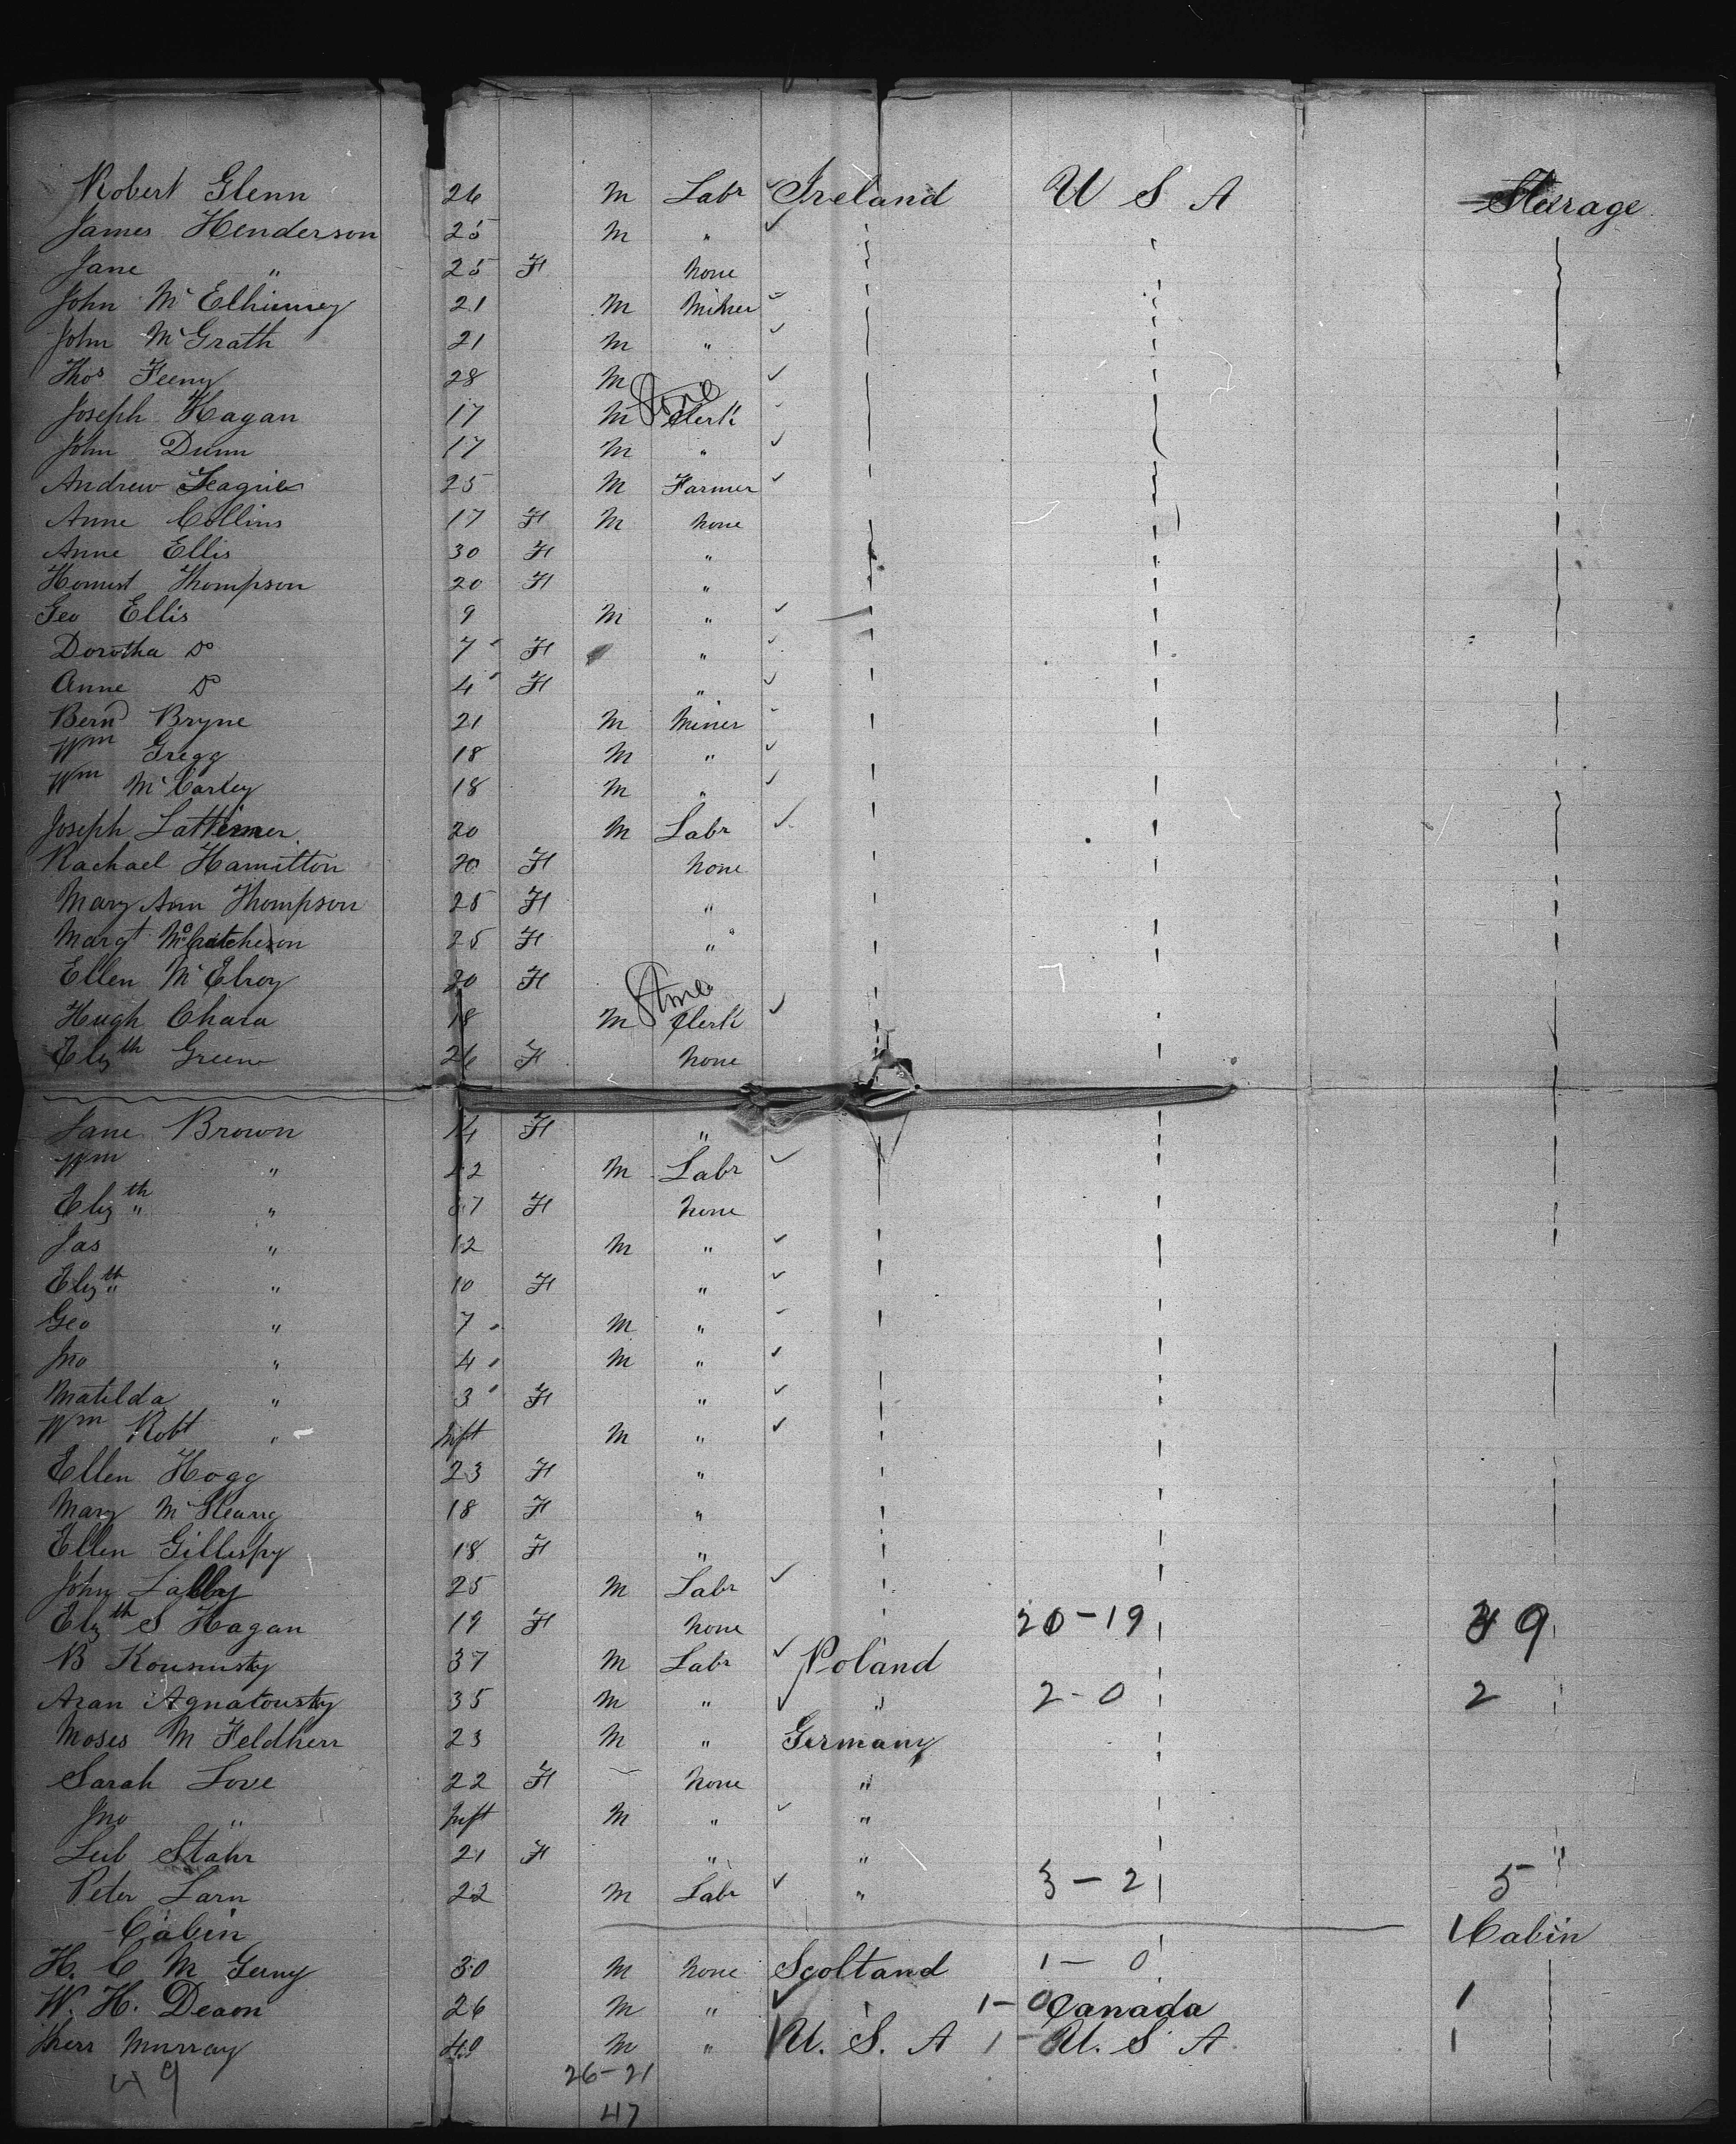 Robert Glenn 26 M Labr Ireland U S A Stearage
James Henderson 25 M "
Jane " 25 F None
John McElhinney 21 M Miner
John McGrath 21 M "
Thos Feeny 28 M
Joseph Hagan 17 M Store Clerk
John Dunn 17 M "
Andrew Teague 25 M Farmer
Anne Collins 17 F M None
Anne Ellis 30 F "
Thompson 20 F "
Geo Ellis 9 M "
Dorotha Do 7 F "
Anne Do 4 F "
Bernd Bryne 21 M Miner
Wm Gregg 18 M "
Wm McCarley 18 M "
Joseph Lattimer 20 M Labr
Rachael Hamilton 20 F None
Mary Ann Thompson 25 F "
Margt McCutcheson 25 F "
Ellen McElroy 20 F
Hugh Chara 18 M Store Clerk
Elizth Green 26 F None
Jane Brown 14 F "
Wm " 22 M Labr
Elizth " 37 F None
Jas " 12 M "
Elizth " 10 F "
Geo " 7 M "
Jno " 4 M "
Matilda " 3 F "
Wm Robt " Inft M "
Ellen Hogg 23 F "
Mary 18 F "
Ellen Gillespy 18 F "
John Labby 25 M Labr
Elizth S Hagan 19 F None 20-19 39
B 37 M Labr Poland
Agnatousky 35 M " " 2-0 2
Moses M Feldherr 23 M " Germany
Sarah Love 22 F None "
Jno " Inft M " "
Leib Stahr 21 F " "
Peter Larn 22 M Labr " 3-2 5
Cabin Cabin
H. C M Gerny 30 M None Scoltand 1-0 1
W. H. Deaon 26 M " " 1-0 Canada 1
Kerr Murray 40 M " U. S. A 1- U. S A 1
49 26-21
47